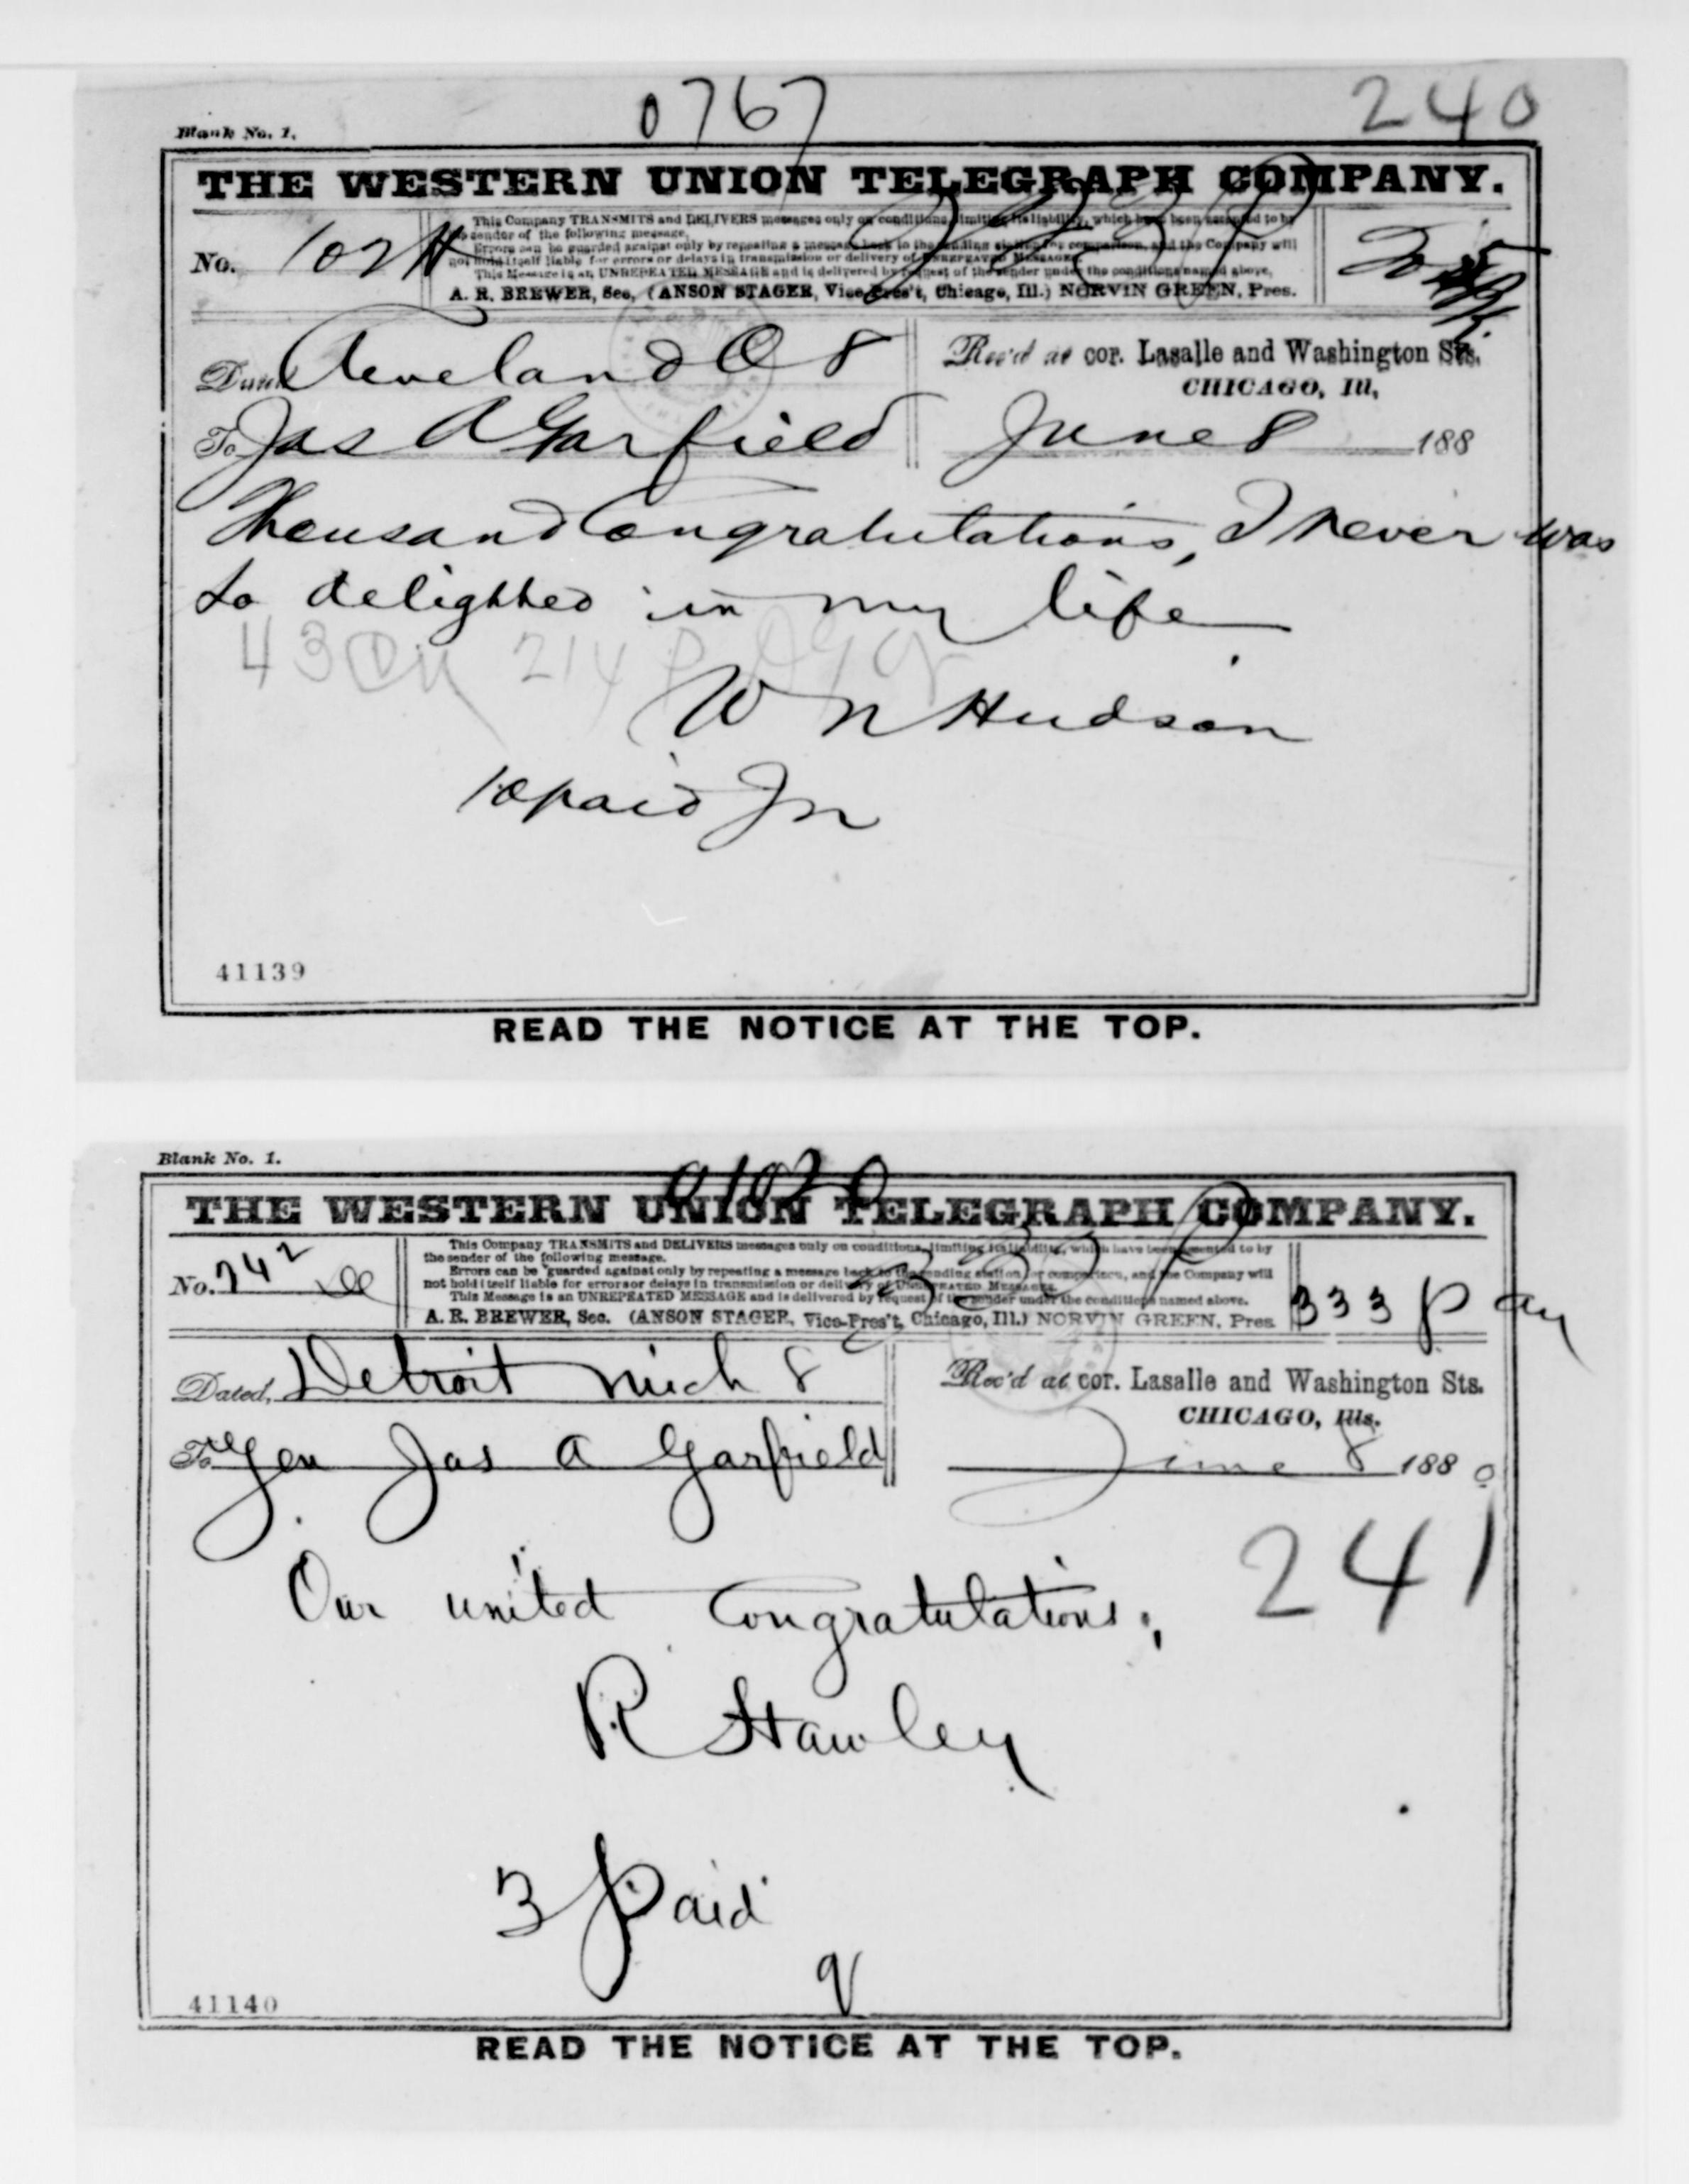 0767
240
Blank No. 1.
THE WESTERN UNION TELEGRAPH COMPANY.
This Company TRANSMITS and DELIVERS messages only on conditions, limiting its liability, which have been assented to by
the sender of the following message.
Errors can be guarded against only by repeating a message back to the sending station for comparison, and the Company will
not hold itself liable for errors or delays in transmission or delivery of UNREPEATED MESSAGES.
This Message is an UNREPEATED MESSAGE and is delivered by request of the sender under the conditions named above.
A. R. BREWER, Sec, (ANSON STAGER, Vice-Pres't, Chicago, Ill.) NORVIN GREEN, Pres.
No. 102 H
Dated Cleveland O 8
Rec'd at cor. Lasalle and Washington Sts.
CHICAGO, Ill,
To Jas A Garfield
June 8 188
Thousand Congratulations, I never was
so delighted in my life
W N Hudson
10 paid
41139
READ THE NOTICE AT THE TOP.
Blank No. 1.
01020
THE WESTERN UNION TELEGRAPH COMPANY.
This Company TRANSMITS and DELIVERS messages only on conditions, limiting its liability, which have been assented to by
the sender of the following message.
Errors can be guarded against only by repeating a message back to the sending station for comparison, and the Company will
not hold itself liable for errors or delays in transmission or delivery of UNREPEATED MESSAGES.
This Message is an UNREPEATED MESSAGE and is delivered by request of the sender under the conditions named above.
A. R. BREWER, Sec. (ANSON STAGER, Vice-Pres't, Chicago, Ill.) NORVIN GREEN, Pres.
No. 742
333 P
Dated, Detroit Mich 8
Rec'd at cor. Lasalle and Washington Sts.
CHICAGO, Ills.
To Gen Jas A Garfield
June 8 1880
241
Our united Congratulations,
R Hawley
3 Paid
41140
READ THE NOTICE AT THE TOP.